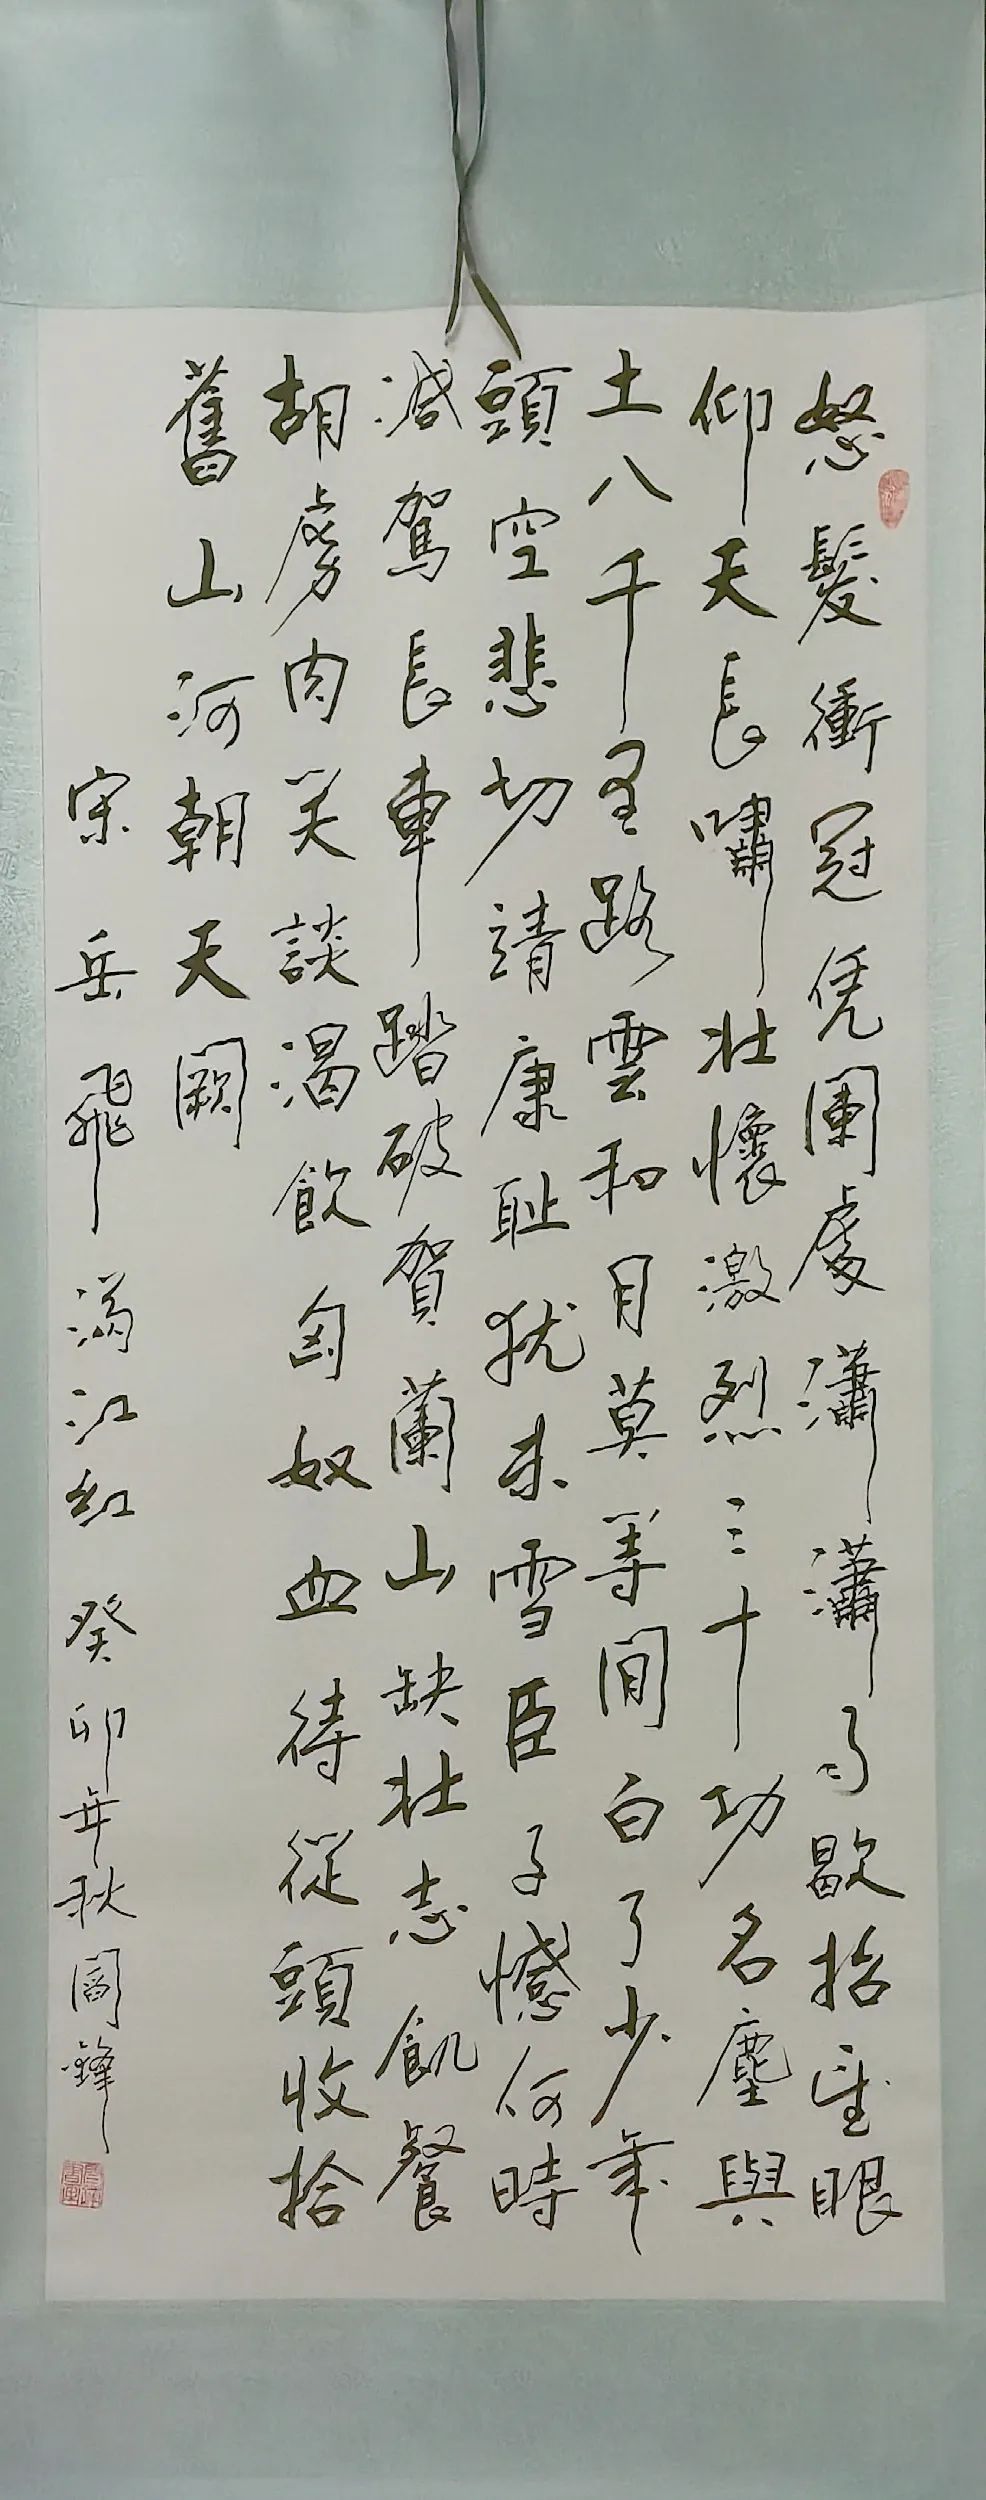 怒髮衝冠凭闌處瀟瀟雨歇抬望眼
仰天長嘯壯懷激烈三十功名塵與
土八千里路雲和月莫等閒白了少年
頭空悲切靖康耻犹未雪臣子憾何時
滅駕長車踏破賀蘭山缺壯志飢餐
胡虜肉笑談渴飲匈奴血待從頭收拾
舊山河朝天闕
宋岳飛滿江红癸卯年秋閻鋒